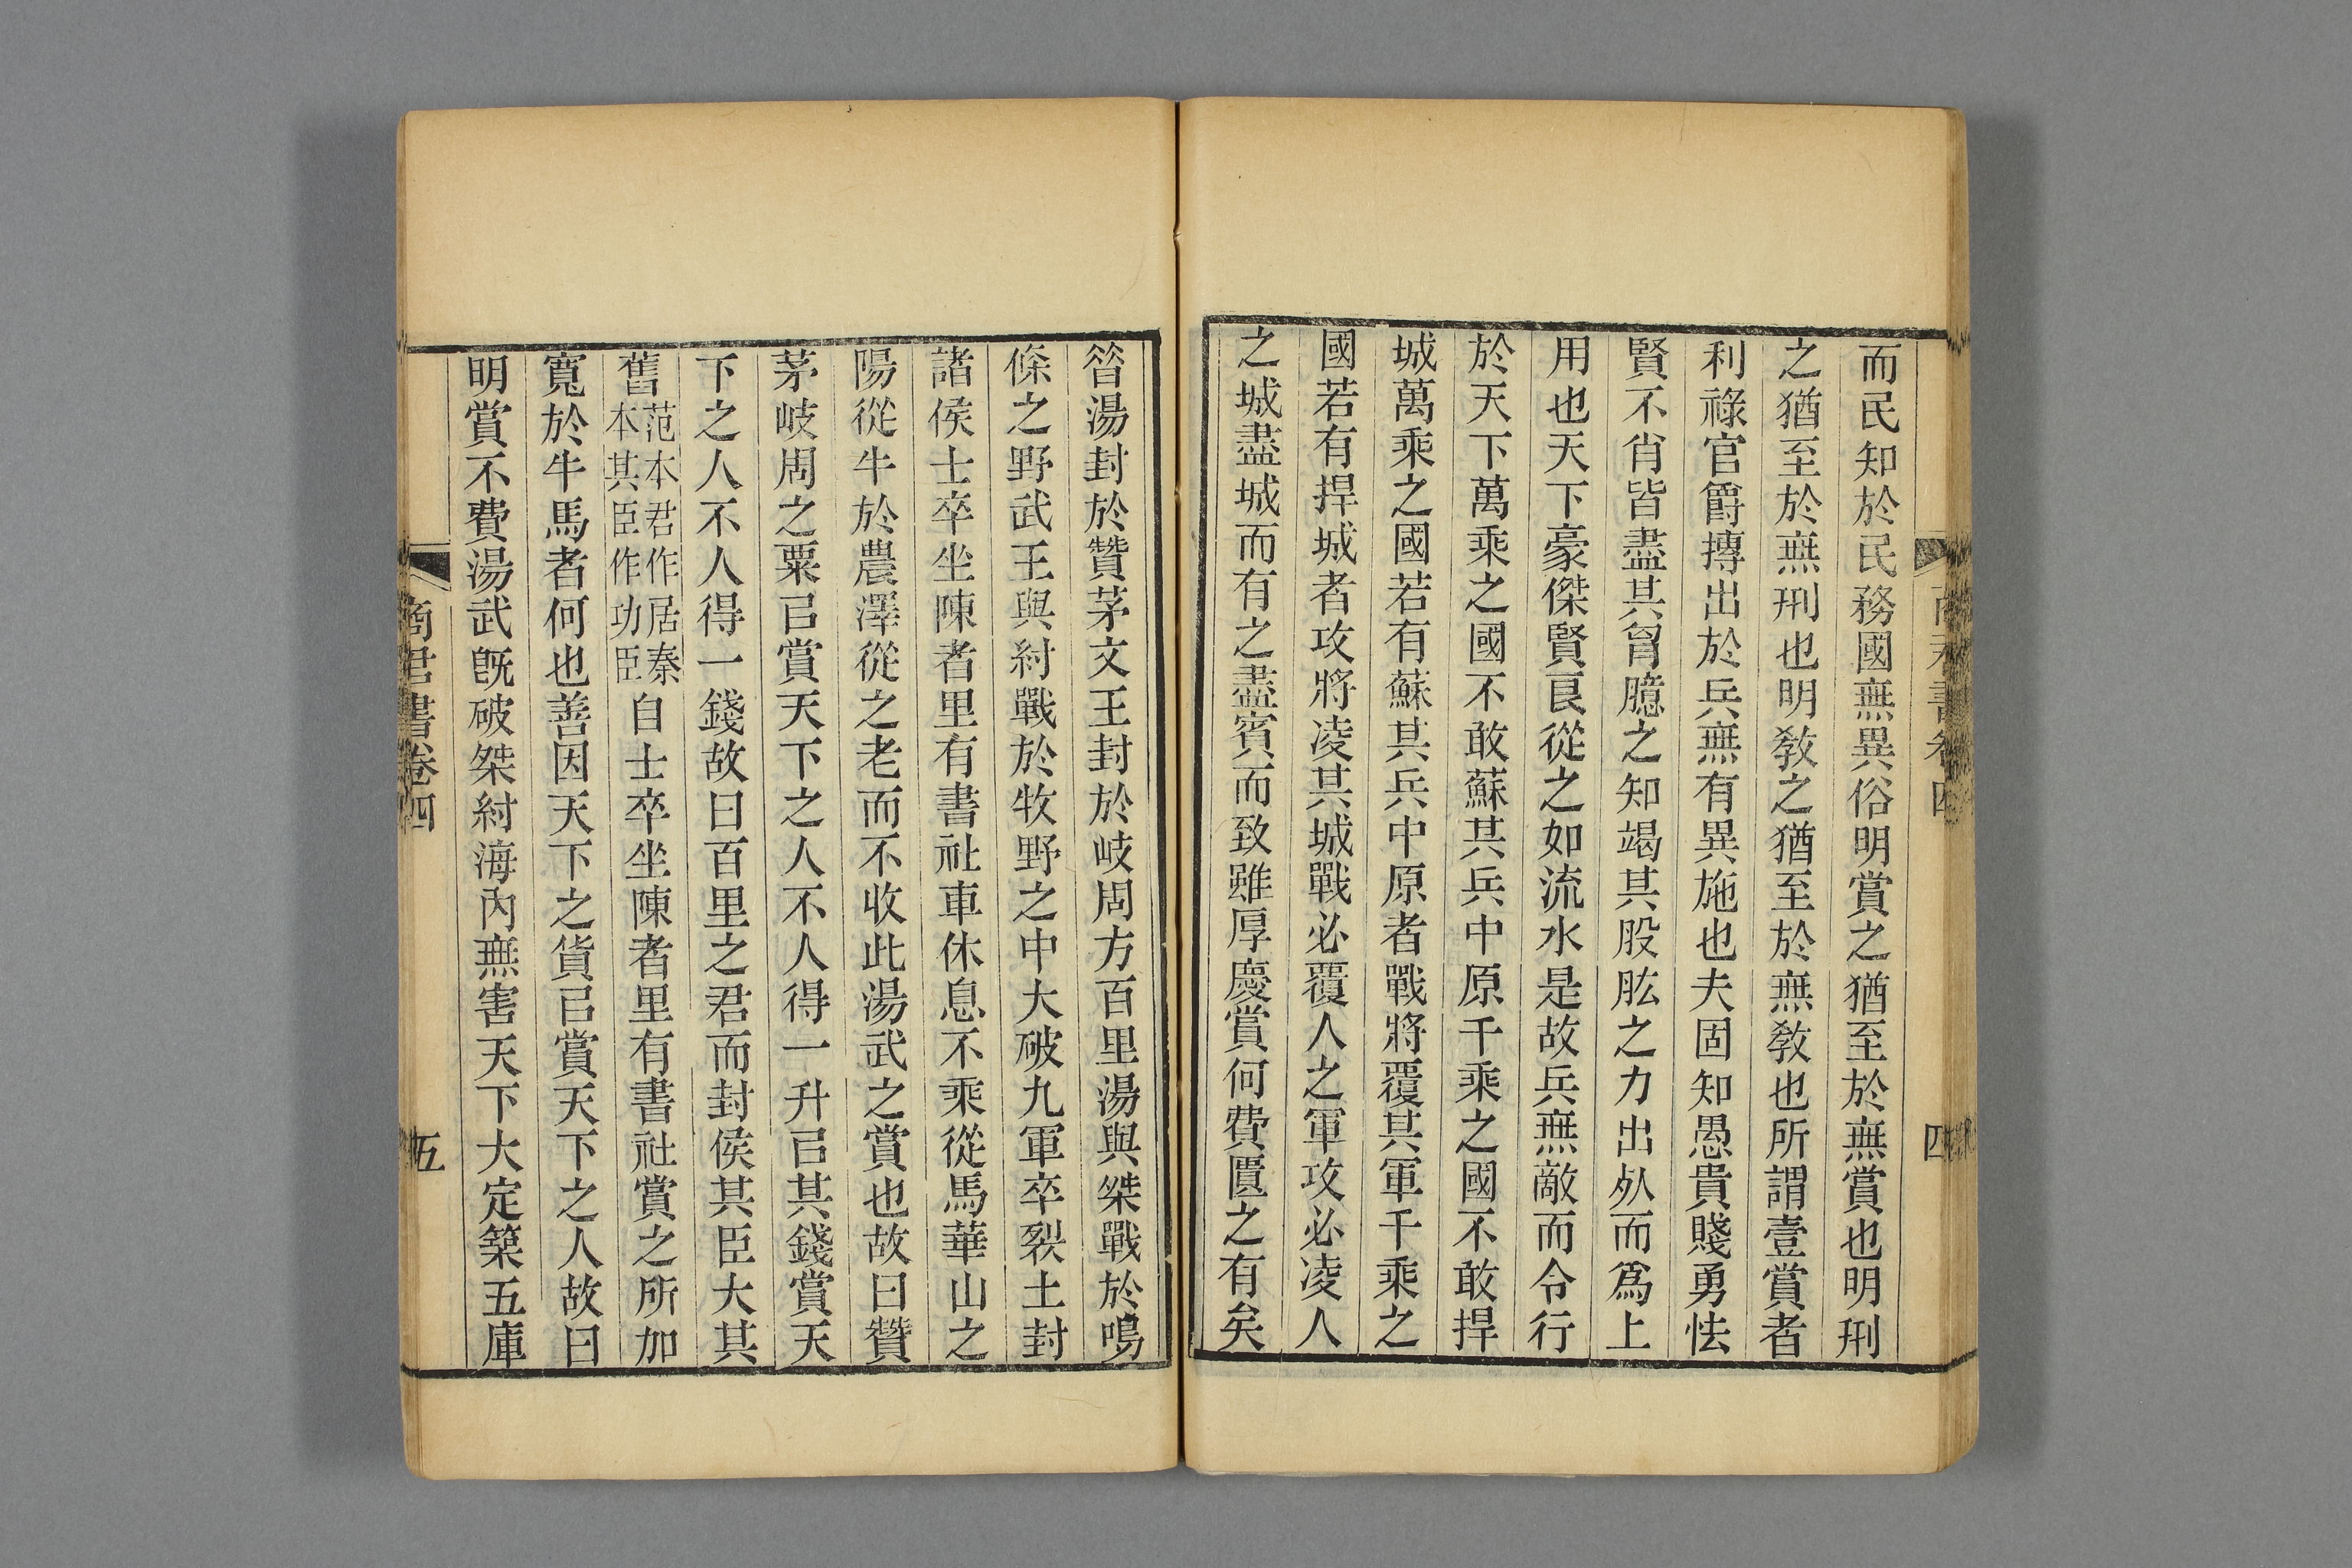 而民知於民務國無異俗明賞之猶至於無賞也明刑
之猶至於無刑也明教之猶至於無教也所謂壹賞者
利祿官爵摶出於兵無有異施也夫固知愚貴賤勇怯
賢不肖皆盡其胷臆之知竭其股肱之力出𣦸而爲上
用也天下豪傑賢良從之如流水是故兵無敵而令行
於天下萬乘之國不敢蘇其兵中原千乘之國不敢捍
城萬乘之國若有蘇其兵中原者戰將覆其軍千乘之
國若有捍城者攻將凌其城戰必覆人之軍攻必凌人
之城盡城而有之盡賓而致雖厚慶賞何費匱之有矣
商君書卷四
四
昝湯封於贊茅文王封於岐周方百里湯與桀戰於鳴
條之野武王與紂戰於牧野之中大破九軍卒裂土封
諸侯士卒坐陳者里有書社車休息不乘從馬華山之
陽從牛於農澤從之老而不收此湯武之賞也故曰贊
茅岐周之粟㠯賞天下之人不人得一升㠯其錢賞天
下之人不人得一錢故曰百里之君而封侯其臣大其
舊范本君作居秦本其臣作功臣自士卒坐陳者里有書社賞之所加
寬於牛馬者何也善因天下之貨㠯賞天下之人故曰
明賞不費湯武旣破桀紂海內無害天下大定築五庫
商君書卷四
五